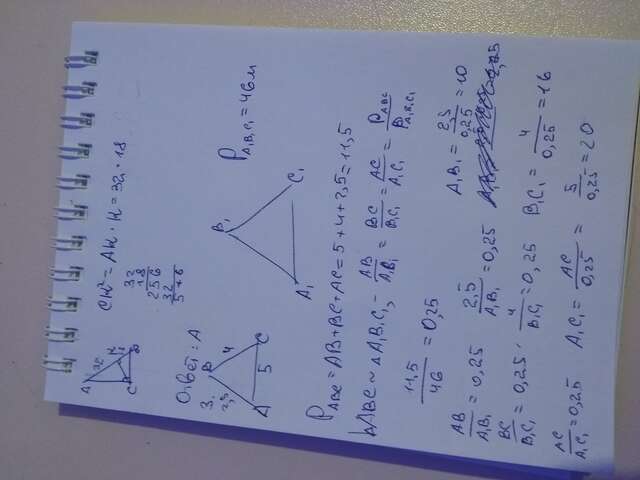 A 32 H 18 B C
CH² = AH · H = 32 · 18
32
18
256
32
576
Ответ: A
3.
B
2,5 4
A 5 C
B₁
A₁ C₁
P A₁B₁C₁ = 46м
P ABC = AB + BC + AC = 5 + 4 + 2,5 = 11,5
△ABC ~ △A₁B₁C₁ - AB/A₁B₁ = BC/B₁C₁ = AC/A₁C₁ = P ABC/P A₁B₁C₁
11,5/46 = 0,25
AB/A₁B₁ = 0,25 2,5/A₁B₁ = 0,25 A₁B₁ = 2,5/0,25 = 10
BC/B₁C₁ = 0,25 · 4/B₁C₁ = 0,25 B₁C₁ = 4/0,25 = 16
AC/A₁C₁ = 0,25 A₁C₁ = AC/0,25 = 5/0,25 = 20